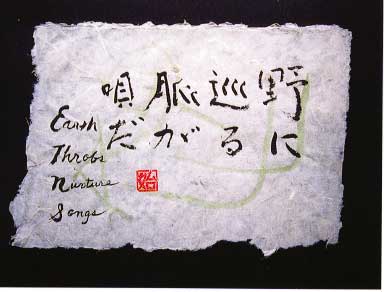 野に
巡る
脈が
唄だ
Earth
Throbs
Nurture
Songs